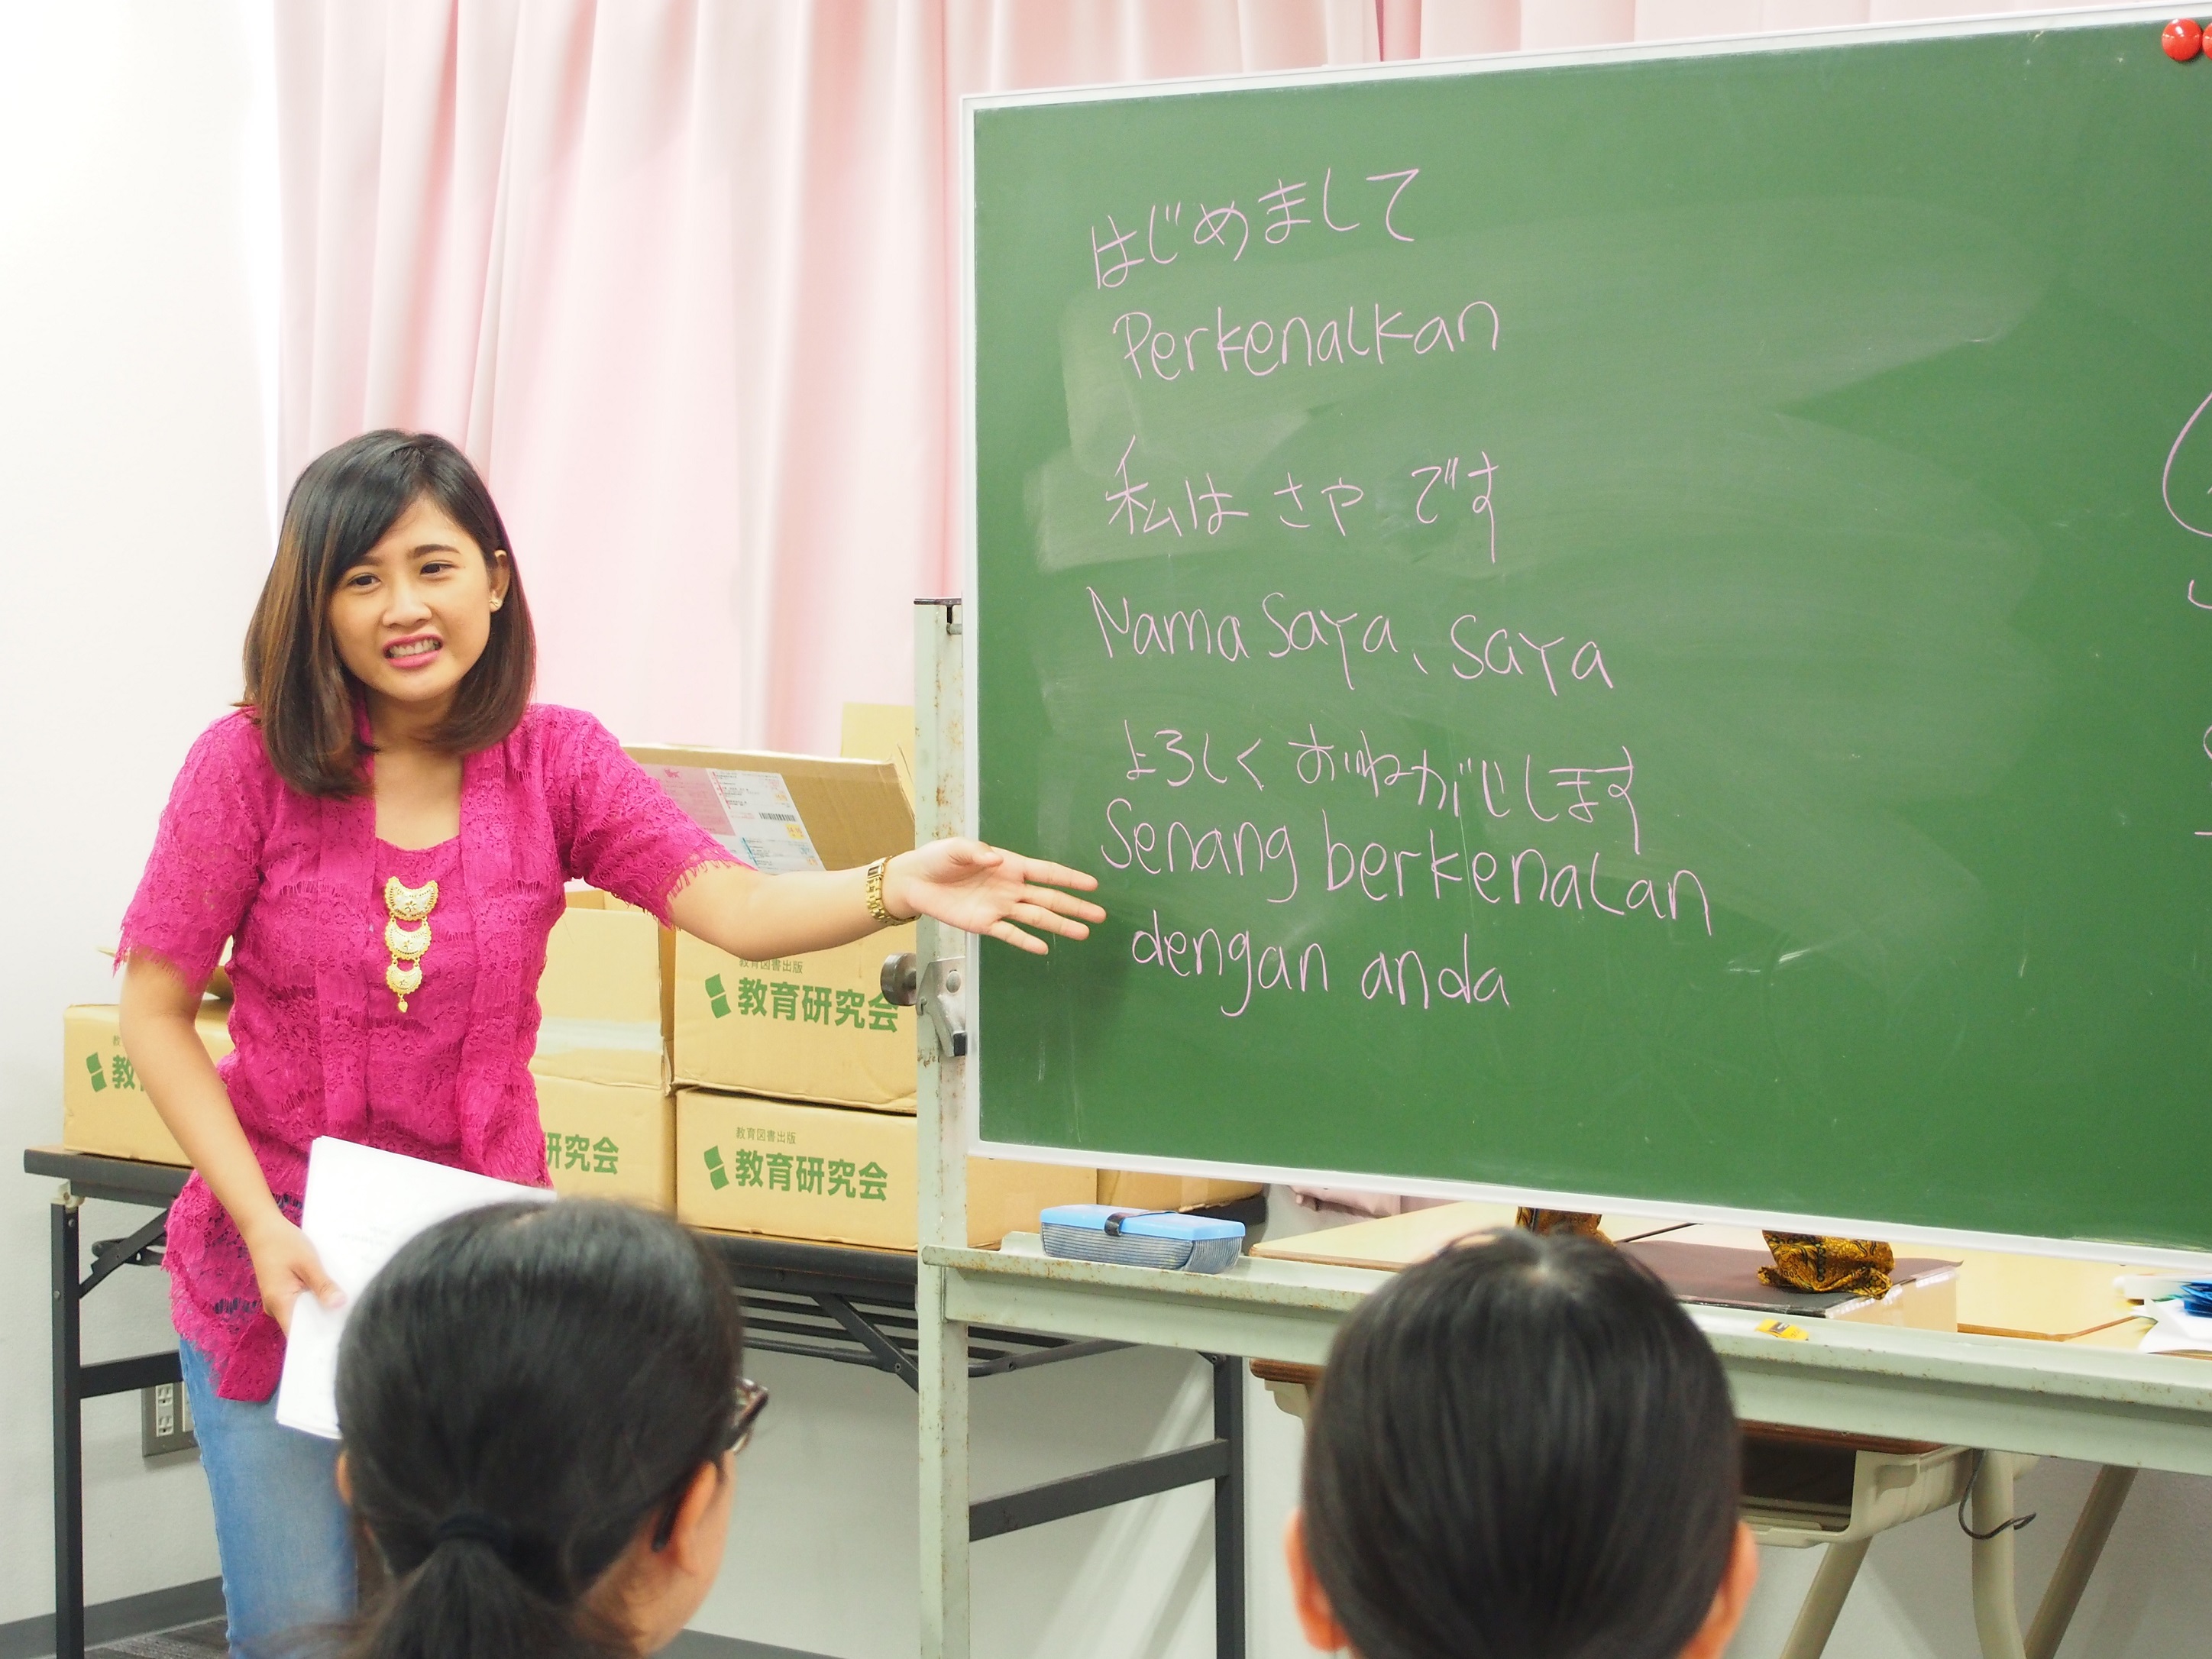 はじめまして
Perkenalkan
私は さや です
Nama Saya、Saya
よろしく おねがいじします
Senang berkenalan
dengan anda
教育図書出版
教育研究会
教
研究会
教育図書出版
教育研究会